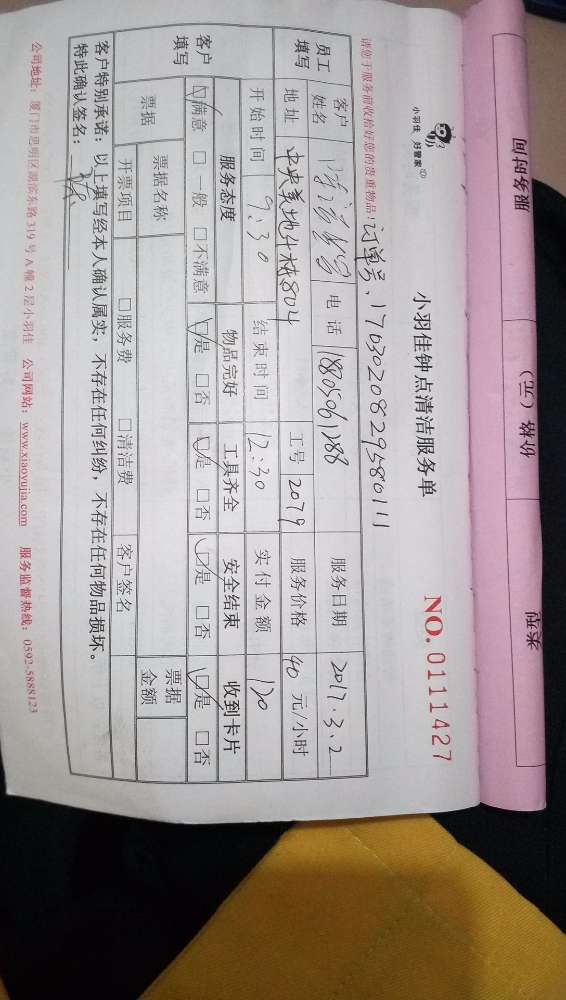 小羽佳 好管家
小羽佳钟点清洁服务单
NO. 0111427
请您于服务前收检好您的贵重物品！订单号：1703020829580111
员工填写
客户姓名 电话 18805061288 服务日期 2017.3.2
地址 中央美地4栋804 工号 2079 服务价格 40 元/小时
开始时间 9:30 结束时间 12:30 实付金额 120
客户填写
服务态度 物品完好 工具齐全 安全结束 收到卡片
☑满意 □一般 □不满意 ☑是 □否 ☑是 □否 ☑是 □否 ☑是 □否
票据 票据名称 票据金额
开票项目 □服务费 □清洁费 客户签名
客户特别承诺：以上填写经本人确认属实，不存在任何纠纷，不存在任何物品损坏。
特此确认签名：
公司地址：厦门市思明区湖滨东路319号A幢2层小羽佳 公司网站：www.xiaoyujia.com 服务监督热线：0592-5888123
服务时间
价格（元）